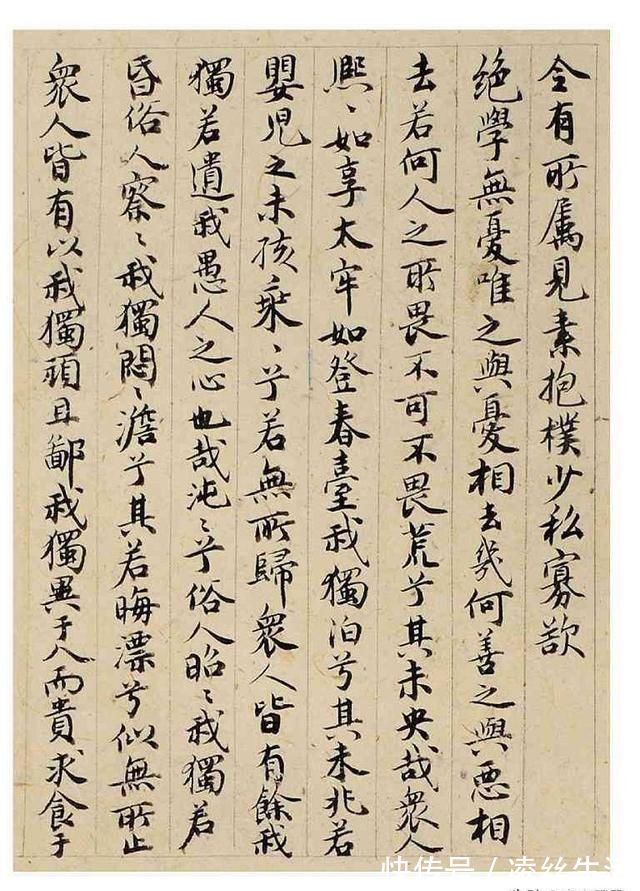 令有所属見素抱樸少私寡欲
绝學無憂唯之與憂相去幾何善之與恶相
去若何人之所畏不可不畏荒兮其未央哉衆人
熙〻如享太牢如登春臺我獨泊兮其未兆若
嬰児之未孩乘〻兮若無所歸衆人皆有餘我
獨若遺我愚人之心也哉沌〻兮俗人昭〻我獨若
昏俗人察〻我獨悶〻澹兮其若晦漂兮似無所止
衆人皆有以我獨頑且鄙我獨異于人而貴求食于
快传号 / 凌丝生